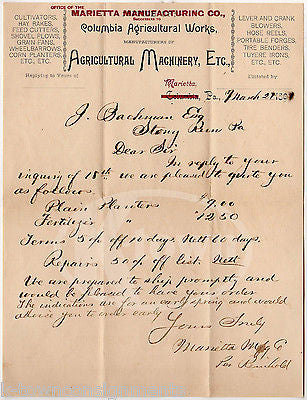 OFFICE OF THE
MARIETTA MANUFACTURING CO.,
Successors to
Columbia Agricultural Works,
MANUFACTURERS OF
AGRICULTURAL MACHINERY, ETC.
CULTIVATORS,
HAY RAKES,
FEED CUTTERS,
SHOVEL PLOWS,
GRAIN FANS,
WHEELBARROWS,
CORN PLANTERS,
ETC., ETC.
LEVER AND CRANK
BLOWERS,
HOSE REELS,
PORTABLE FORGES,
TIRE BENDERS,
TUYERE IRONS,
ETC., ETC.
Replying to Yours of
Dictated by
Marietta,
Columbia, Pa., March
J. Bachman Esq
Stony Run Pa
Dear Sir
In reply to your
inquiry of 18th we are pleased to quote you
as follows.
Plain Planters $9.00
Fertilizer " 12.50
Terms 5% off 10 days. Nett 60 days.
Repairs 50% off list. Nett
We are prepared to ship promptly and
would be pleased to have your order
The indications are for an early spring and would
advise you to order early
Yours Truly
Marietta Mfg Co
Per